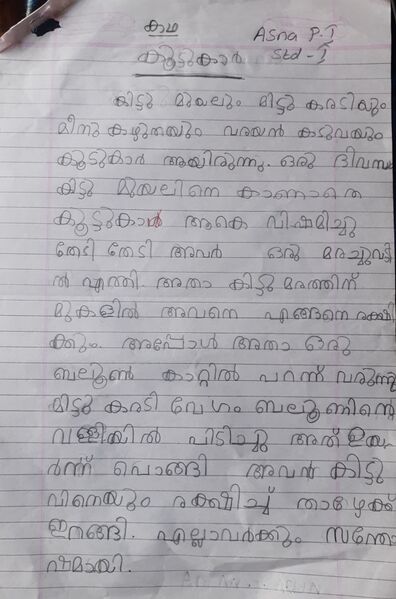 കഥ
Asna P.T
Std - I
കൂട്ടുകാർ
കിട്ടു മുയലും മിട്ടു കരടിയും
മീനു കഴുതയും വരയൻ കടുവയും
കൂടുകാർ ആയിരുന്നു. ഒരു ദിവസം
കിട്ടു മുയലിനെ കാണാതെ
കൂട്ടുകാർ ആകെ വിഷമിച്ചു
തേടി തേടി അവർ ഒരു മരച്ചുവട്ടി
ൽ എത്തി. അതാ കിട്ടു മരത്തിന്
മുകളിൽ അവനെ എങ്ങനെ രക്ഷി
ക്കും. അപ്പോൾ അതാ ഒരു
ബലൂൺ കാറ്റിൽ പറന്ന് വരുന്നു
മിട്ടു കരടി വേഗം ബലൂണിന്റെ
വള്ളിയിൽ പിടിച്ചു അത് ഉയ
ർന്ന് പൊങ്ങി അവൻ കിട്ടു
വിനെയും രക്ഷിച്ച് താഴേക്ക്
ഇറങ്ങി. എല്ലാവർക്കും സന്തോ
ഷമായി.